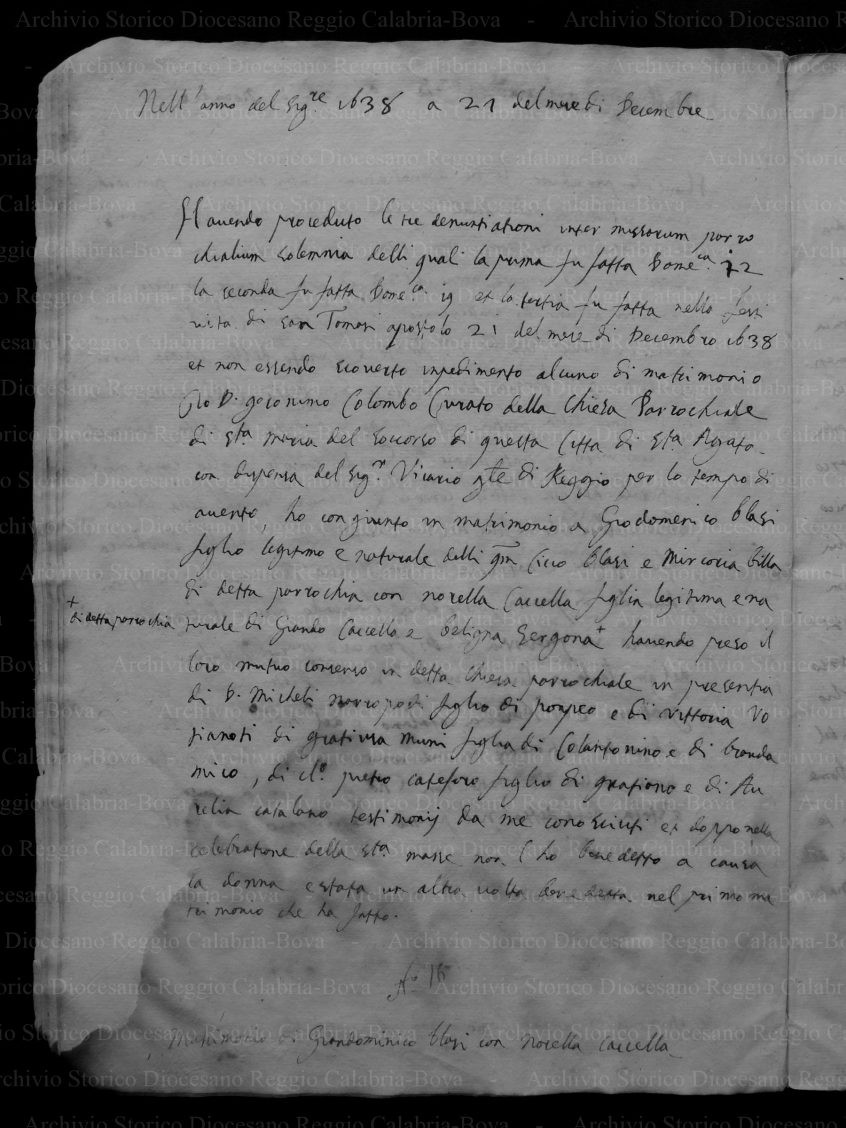 Nell'anno del Sig.re 1638 a 21 del mese di Decembre
Havendo proceduto le tre denuntiationi inter missarum parro
chialium solemnia delli quali la prima fu fatta Dome.ca 12
la seconda fu fatta Dome.ca 19 et la tertia fu fatta nella festi
vita di San Tomasi apostolo 21 del mese di Decembro 1638
et non essendo scoverto inpedimento alcuno di matrimonio
Io D. Geronimo Colombo Curato della Chiesa Parrochiale
di S.ta Maria del Soccorso di questa Citta di S.ta Agata
con dispensa del Sig.r Vicario gnle di Reggio per lo tempo di
avento, ho congiunto in matrimonio a Giodomenico blasi
figlio legitimo e naturale delli qm Cicco blasi e Mircoria billa
di detta parrochia con norella Caccella figlia legitima e na
+ di detta parrochia
turale di Grando Caccella e beligna Sergona + havendo preso il
loro mutuo consenso in detta Chiesa parrochiale in presentia
di D. Micheli marropodi figlio di pompeo e di vittoria Vo
pianoti di gratiusa muni figlia di Colantonino e di branda
mico, di cl.o pietro catefaro figlio di gratiano e di Au
relia catalano testimonij da me conosciuti et doppo nella
celebratione della S.ta massa non l'ho benedetto a causa
la donna e stata un altra volta benedetta nel primo ma
trimonio che ha fatto.
Matrimonio di Grandominico blasi con norella caccella
Archivio Storico Diocesano Reggio Calabria-Bova